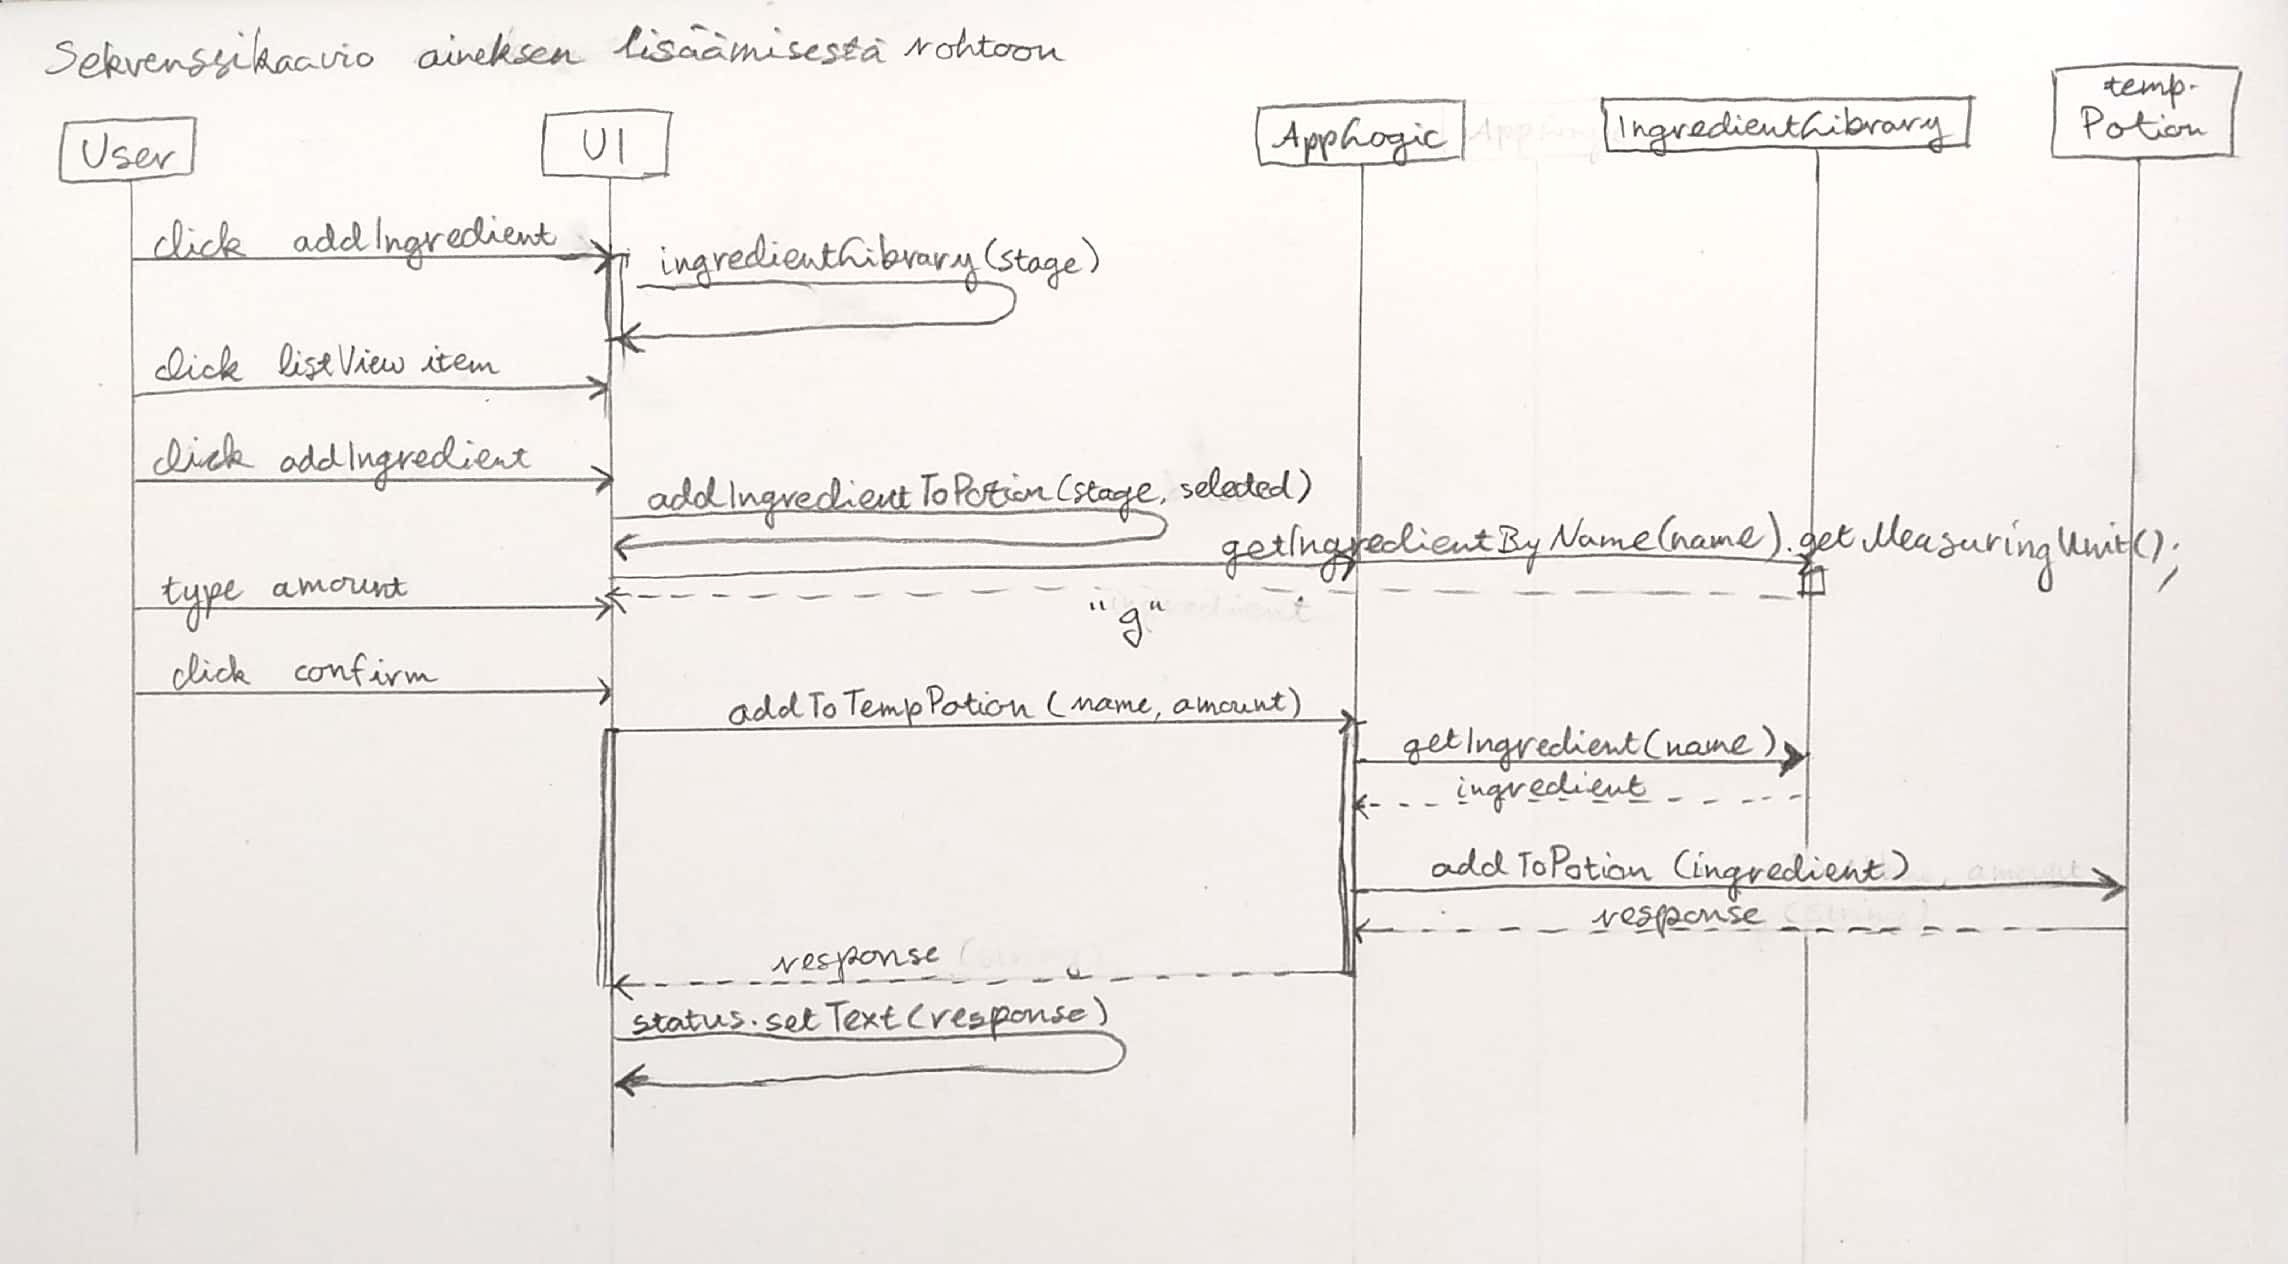 Sekvenssikaavio aineksen lisäämisestä rohtoon
User
UI
AppLogic
IngredientLibrary
temp-
Potion
click addIngredient
ingredientLibrary(stage)
click listView item
click addIngredient
addIngredientToPotion(stage, selected)
getIngredientByName(name).getMeasuringUnit();
type amount
"g"
click confirm
addToTempPotion(name, amount)
getIngredient(name)
ingredient
addToPotion(ingredient)
response
response
status.setText(response)